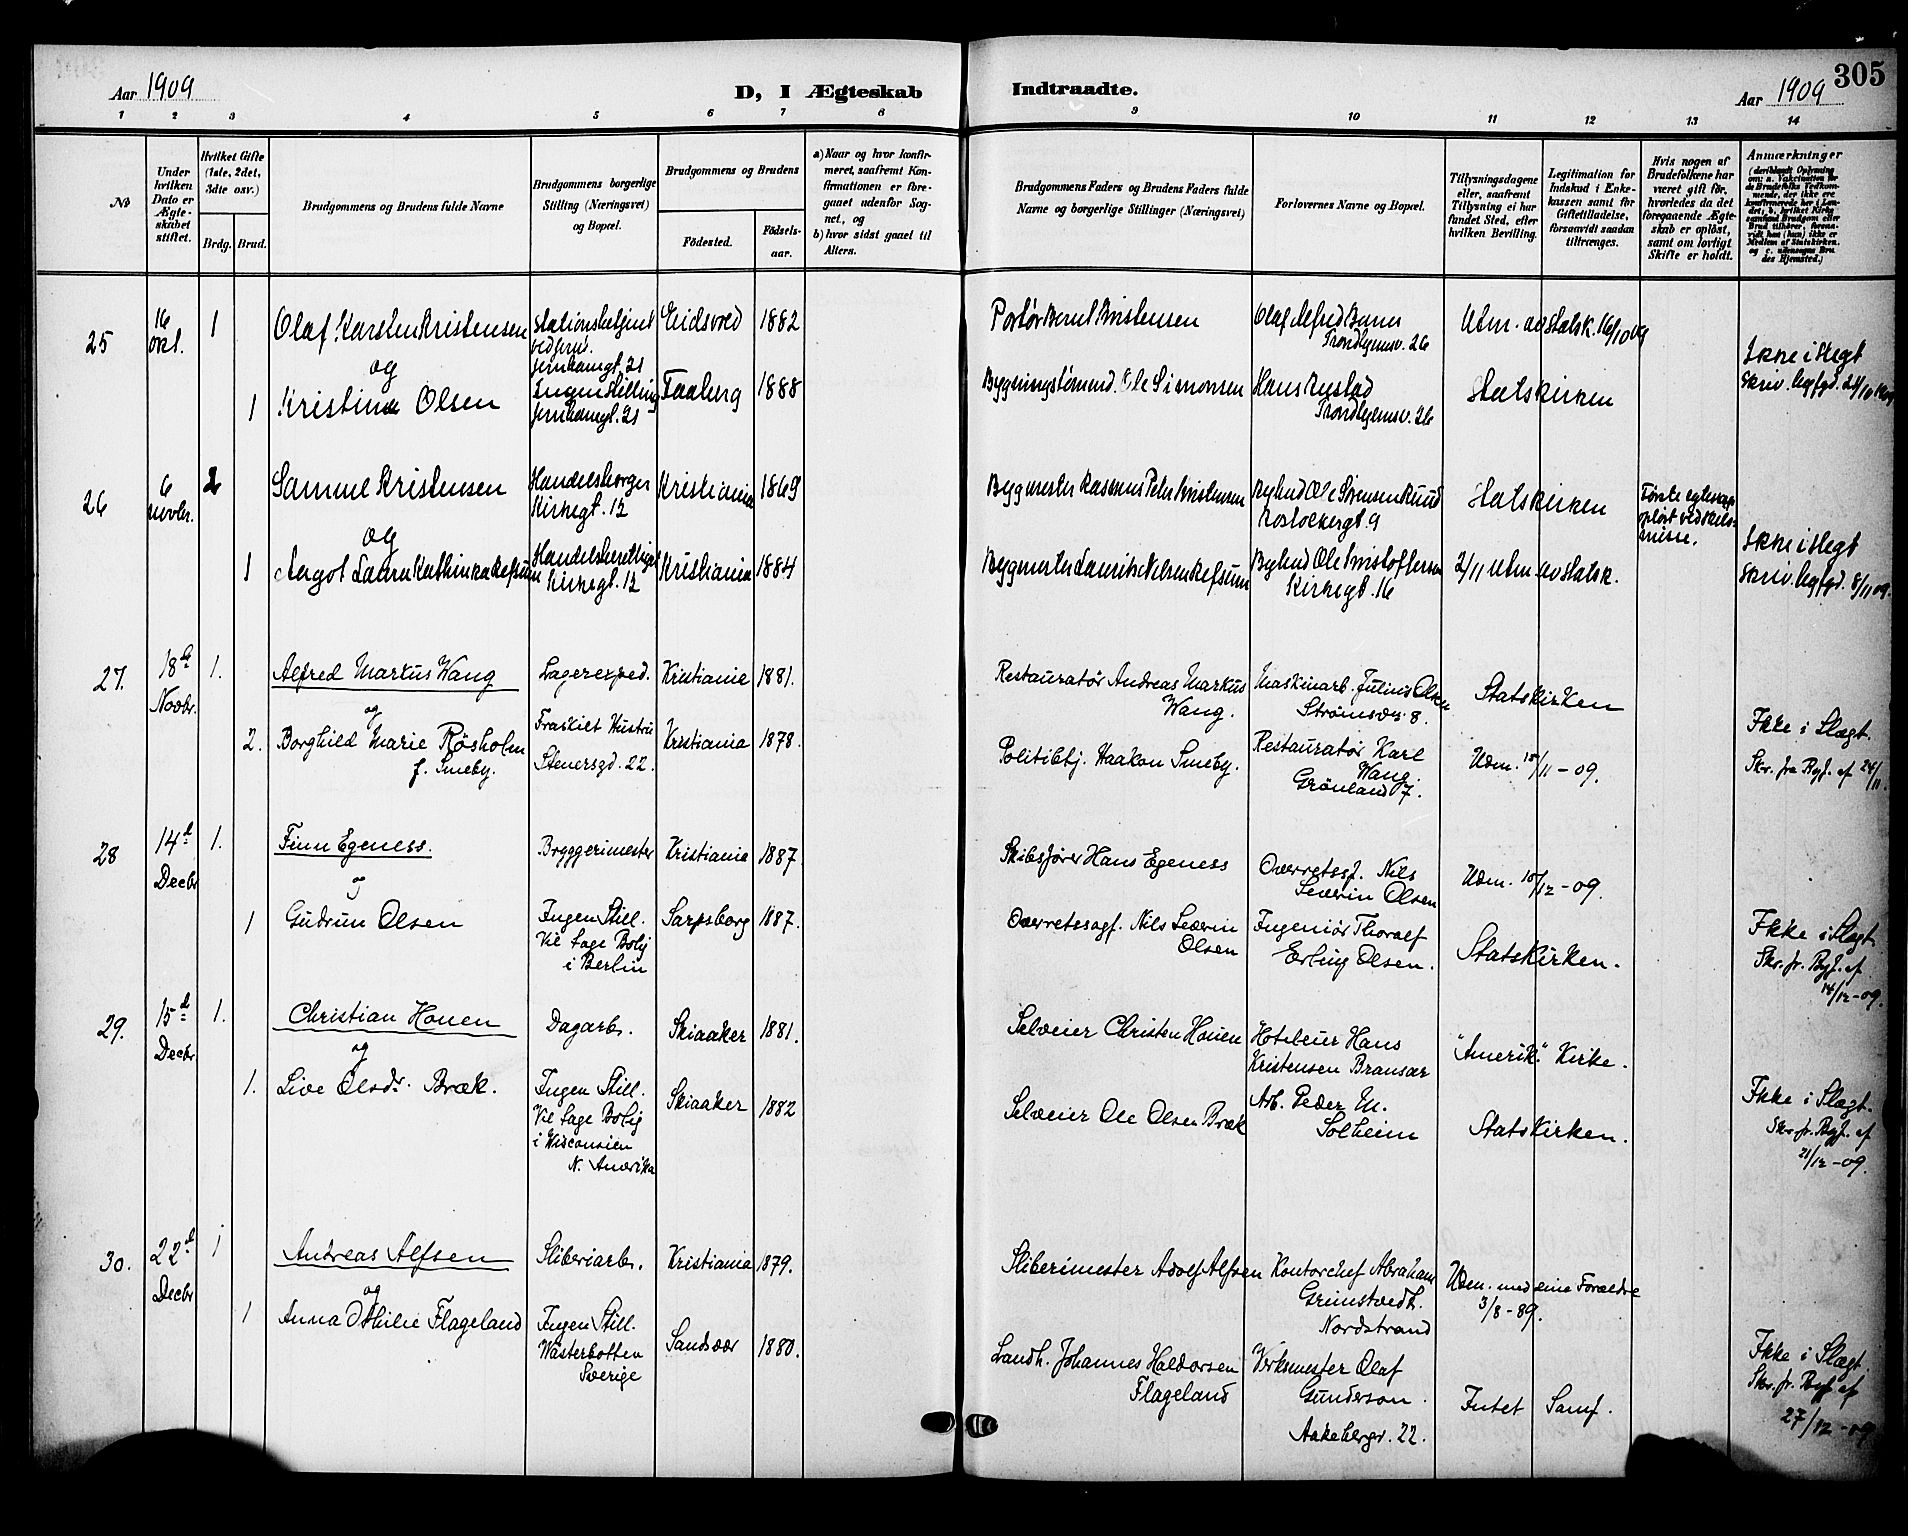 305
Aar 1909
D, I Ægteskab
Indtraadte.
Aar 1909
1 2 3 4 5 6 7 8 9 10 11 12 13 14
No
Under hvilken Dato er Ægteskabet stiftet.
Hvilket Gifte (1ste, 2det, 3die osv.)
Brdg. Brud.
Brudgommens og Brudens fulde Navne
Brudgommens borgerlige Stilling (Næringsvei) og Bopæl.
Brudgommens og Brudens
Fødested.
Fødselsaar.
a) Naar og hvor konfirmeret, saafremt Konfirmationen er foregaaet udenfor Sognet, og
b) hvor sidst gaaet til Alters.
Brudgommens Faders og Brudens Faders fulde Navne og borgerlige Stillinger (Næringsvei)
Forlovernes Navne og Bopæl.
Tillysningsdagene eller, saafremt Tillysning ei har fundet Sted, efter hvilken Bevilling.
Legitimation for Indskud i Enkekassen samt for Giftetilladelse, forsaavidt saadan tiltrænges.
Hvis nogen af Brudefolkene har været gift før, hvorledes da det foregaaende Ægteskab er opløst, samt om lovligt Skifte er holdt.
Anmærkninger
25
16 okt.
1
Olaf Karsten Kristensen
Stationsbetjent ved jernb. Jernbanegt. 21
Eidsvold
1882
Portør Bernt Kristensen
Olaf Alfred
Trondhjemsv. 26
Utm. av Statsk. 16/10 09
og
1
Kristine Olsen
Ingen stilling
Jernbanegt. 21
Faaberg
1888
Bygningstømmerm. Ole Simonsen
Hans Rustad
Trondhjemsv. 26
Statskirken
Ikke i slegt
Skriv. 24/10
26
6 novbr.
2
Samuel Kristensen
Handelsborger
Kirkegt. 12
Kristiania
1869
Bygmester Rasmus Peter Kristensen
Ole Sørensen Ruud
Rostockergt. 9
Statskirken
Første egteskap opløst ved skilsmisse.
og
1
Aagot Laura Kathinka Refsum
Kirkegt. 12
Kristiania
1884
Bygmester Laurits Nilsen Refsum
Ole Kristoffersen
Kirkegt. 16
2/11 utm. av Statsk.
Ikke i slegt
Skriv. 8/11 09.
27.
18de Novbr.
1.
Alfred Markus Wang
Lagerexped.
Kristiania
1881.
Restauratør Andreas Markus Wang.
Maskinarb. Julius Olsen
Strømsvej 8.
Statskirken
og
2.
Borghild Marie Røsholm
f. Smeby.
Fraskilt Hustru
Stenersgd. 22.
Kristiania
1878.
Politibtj. Haakon Smeby.
Restauratør Karl Wang.
Grønland 7.
Udm. 15/11 - 09.
Ikke i Slægt.
Skr. fra Bygf. af 24/11
28
14d Decbr
1.
Finn Egeness.
Bryggerimester
Kristiania
1887.
Skibsfører Hans Egeness
Overretssf. Nils Severin Olsen
Udm. 10/12 - 09.
og
1
Gudrun Olsen
Ingen Still.
Vil tage Bolig i Berlin
Sarpsborg
1887.
Overretssagf. Nils Severin Olsen
Ingeniør Thoralf Erling Olsen.
Statskirken.
Ikke i Slægt
Skr. fr. Bygf. af 14/12 - 09.
29.
15d Decbr
1.
Christian Houen
Dagarb.
Skiaaker
1881.
Selveier Christen Houen
Hoteleier Hans Kristensen Bransær
"Amerik." Kirke.
og
1.
Live Olsdr. Bræk.
Ingen Still.
Vil tage Bolig i Wisconsien
N. Amerika
Skiaaker
1882
Selveier Ole Olsen Bræk
Arb. Peder M. Solheim
Statskirken.
Ikke i Slægt.
Skr. fr. Bygf. af 21/12 - 09.
30.
22d Decbr
1
Andreas Alfsen
Sliberiarb.
Kristiania
1879.
Sliberimester Adolf Alfsen
Kontorchef Abraham Grimstvedt.
Nordstrand
Udm. med sine Forældre 3/8 - 89.
og
1
Anna Othilie Flageland
Ingen Still.
Wasterbotten
Sverige
Sandsvær
1880.
Landh. Johannes Haldorsen Flageland
Verksmester Olaf Gunderson.
Aakebergv. 22.
Intet Samf.
Ikke i Slægt.
Skr. fr. Bygf. af 27/12 - 09